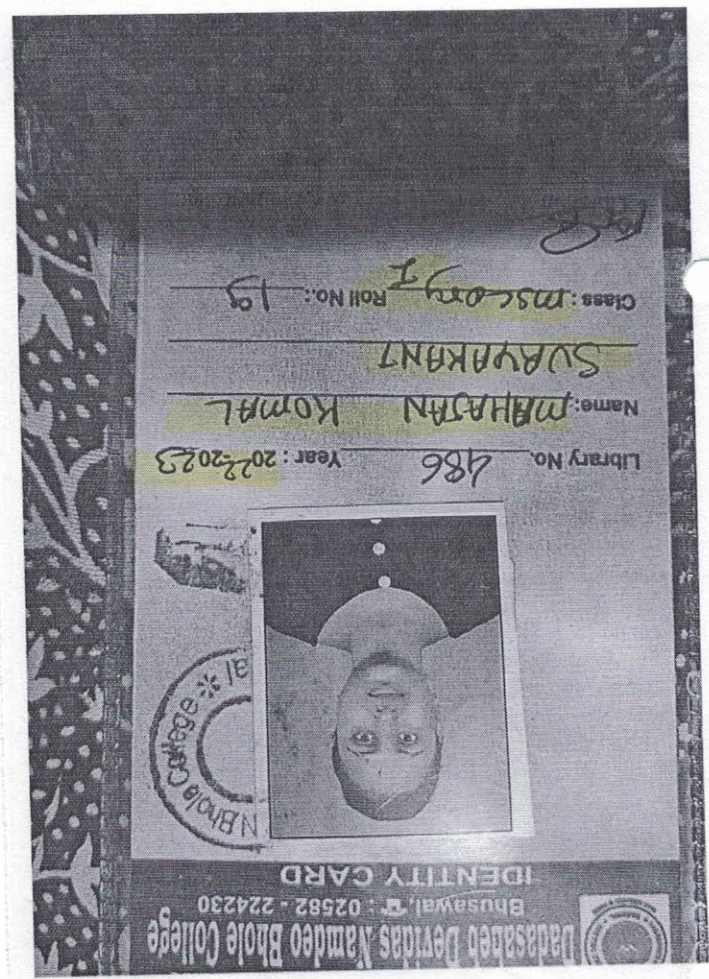 Dadasaheb Devidas Namdeo Bhole College
Bhusawal, ☎: 02582 - 224230
IDENTITY CARD
N Bhole College * al
Library No. 486 Year : 2022-2023
Name: MAHAJAN KOMAL
SURYAKANT
Class: MSC org I Roll No.: 19